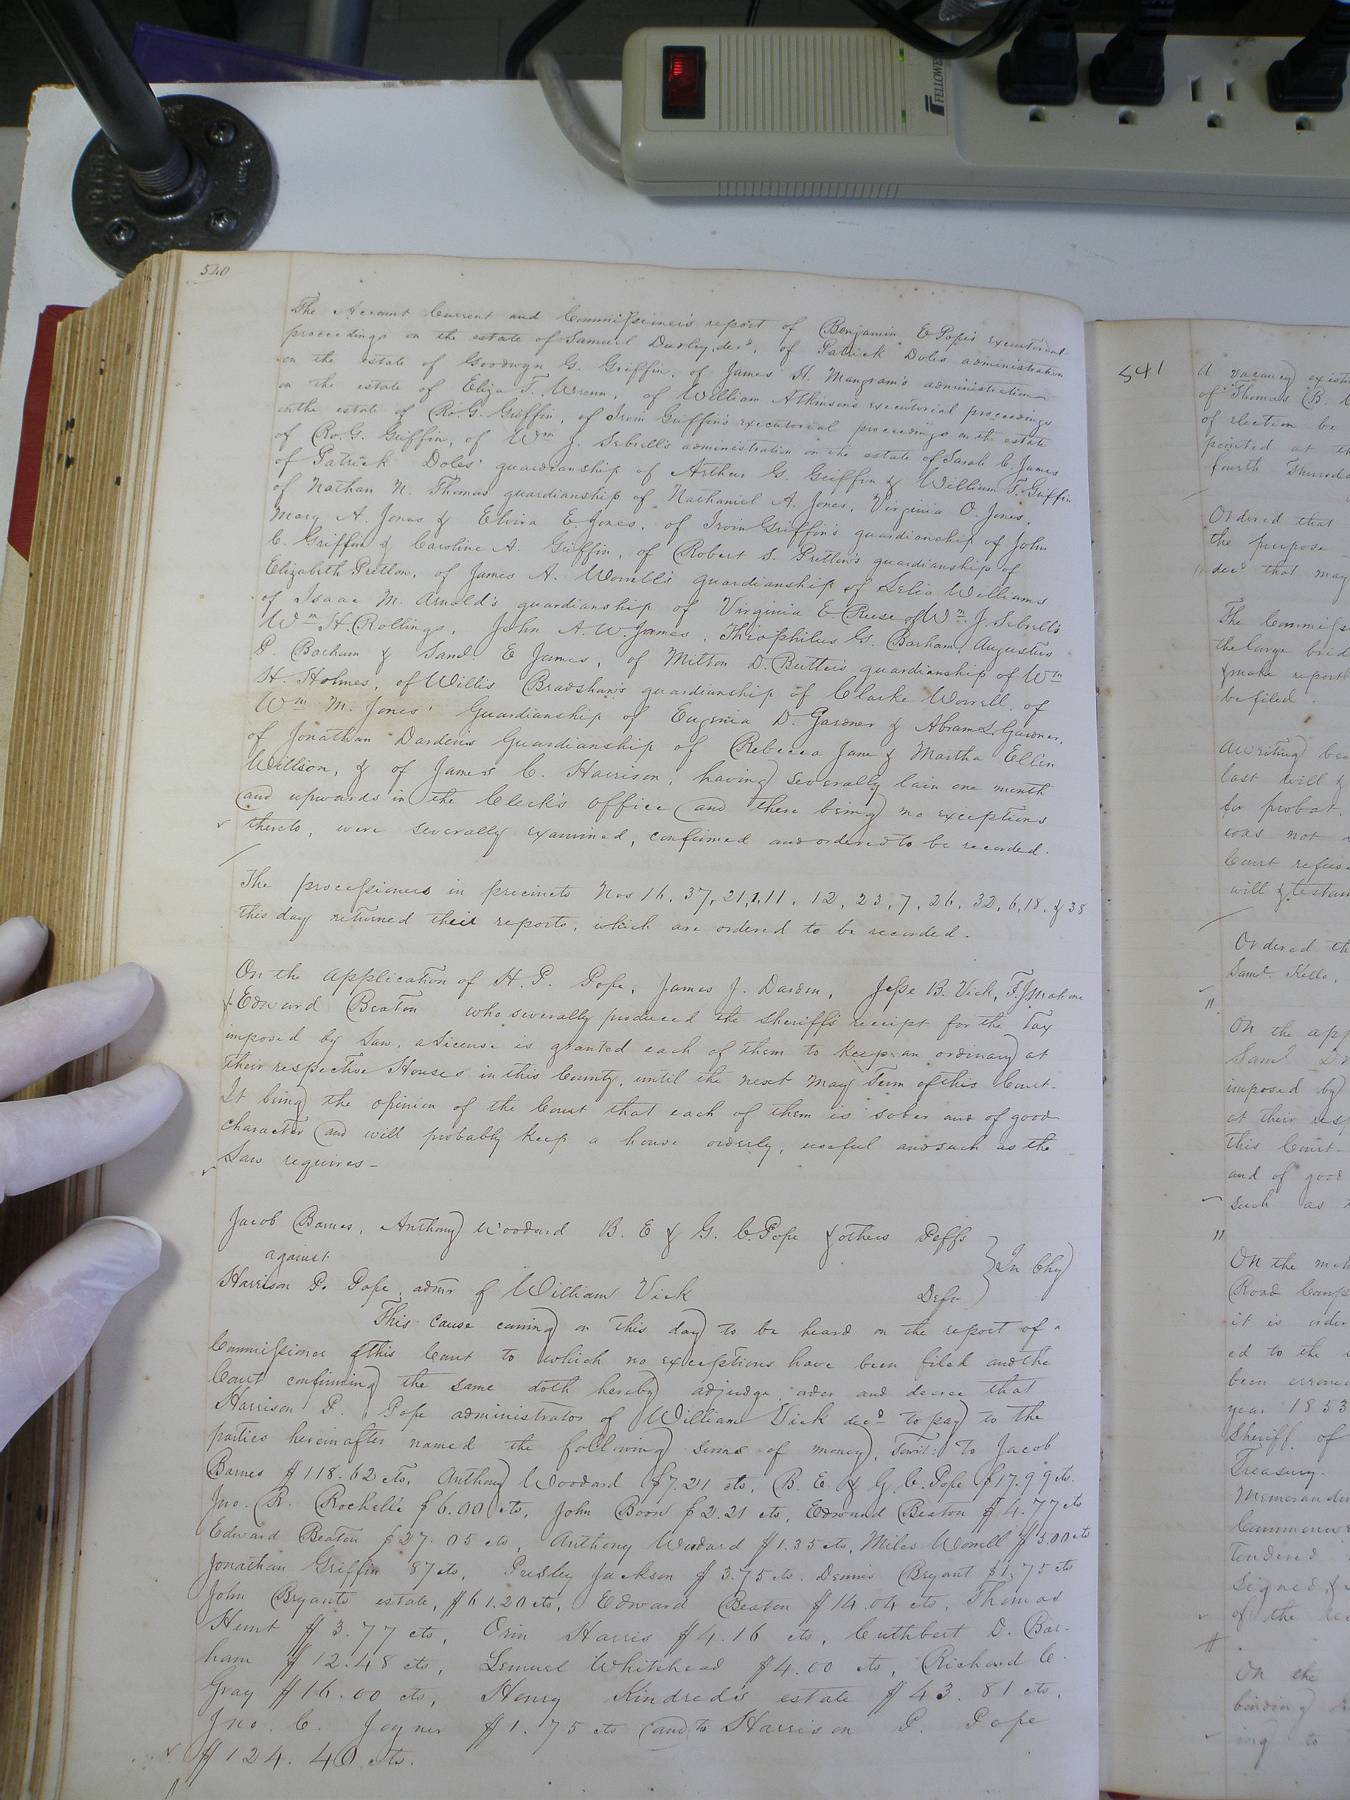 FELLOWES
540
The Account Current and Commissioner's report of Benjamin E Pope's executorial
proceedings on the estate of Samuel Dudley, decd, of Patrick Doles administration
on the estate of Goodwyn G. Griffin, of James H. Mangram's administration
on the estate of Eliza T. Wrenn, of William Atkinson's executorial proceedings
on the estate of Ro. G. Griffin, of Irvin Griffin's executorial proceedings on the estate
of Ro. G. Griffin, of Wm J. Sebrell's administration on the estate of Sarah C. James
of Patrick Doles' guardianship of Arthur G. Griffin & William T. Griffin
of Nathan N. Thomas guardianship of Nathaniel A. Jones, Virginia O. Jones,
Mary A. Jones & Elvira E Jones, of Irvin Griffin's guardianship of John
C. Griffin & Caroline A. Griffin, of Robert S. Pretlow's guardianship of
Elizabeth Pretlow, of James A. Worrell's guardianship of Williams
of Isaac M. Arnold's guardianship of Virginia E Reese of Wm J. Sebrell's
Wm H. Rollings, John A. W. James, Theophilus G. Barham, Augustus
P. Barham & Saml E James, of Milton D. Butler's guardianship of Wm
H. Holmes, of Willis Bradshaw's guardianship of Clarke Worrell, of
Wm M. Jones' Guardianship of Eugenia D. Gardner & Abram L. Gardner,
of Jonathan Darden's Guardianship of Rebecca Jane & Martha Ellen
Willson, & of James C. Harrison, having severally lain one month
and upwards in the Clerk's office and there being no exceptions
thereto, were severally examined, confirmed and ordered to be recorded.
The processioners in precincts Nos 16, 37, 21, 1, 11, 12, 23, 7, 26, 32, 6, 18, & 38
this day returned their reports, which are ordered to be recorded.
On the application of H. P. Pope, James J. Darden, Jesse B. Vick, 
& Edward Beaton who severally produced the sheriff's receipt for the Tax
imposed by Law, a License is granted each of them to keep an ordinary at
their respective Houses in this County, until the next May Term of this Court.
It being the opinion of the Court that each of them is sober and of good
character and will probably keep a house orderly, useful and such as the
Law requires -
Jacob Barnes, Anthony Woodard B. E & G. C. Pope & others Plffs
against
In Chy
Harrison P. Pope, admr of William Vick Deft
This cause coming on this day to be heard on the report of a
Commissioner of this Court to which no exceptions have been filed and the
Court confirming the same doth hereby adjudge order and decree that
Harrison P. Pope administrator of William Vick decd to pay to the
parties herein after named the following sums of money, Towit: to Jacob
Barnes $118.62 cts, Anthony Woodard $7.21 cts, B. E. & G. C. Pope $17.99 cts.
Jno. R. Rochelle $6.00 cts, John Boon $2.21 cts, Edward Beaton $4.77 cts
Edward Beaton $27.05 cts, Anthony Woodard $1.35 cts, Miles Worrell $3.00 cts
Jonathan Griffin 87 cts, Presley Jackson $3.75 cts. Dennis Bryant $1.75 cts
John Bryants estate, $61.20 cts, Edward Beaton $14.04 cts, Thomas
Hunt $3.77 cts, Orin Harris $4.16 cts, Cuthbert D. Bar-
ham $12.48 cts, Lemuel Whitehead $4.00 cts, Richard C.
Gray $16.00 cts, Henry Kindred's estate $43.81 cts,
Jno. C. Joyner $1.75 cts and to Harrison P. Pope
$124.40 cts.
541
A vacancy
of Thomas B.
of election be
pointed at
fourth Thursda
Ordered that
the purpose
decd that may
The Commiss
the large brid
& make report
be filed.
A writing
last will &
for probat.
was not
Court refus
will & testam
Ordered th
Saml. Kello,
On the app
Saml
imposed by
at their resp
this Court
and of good
such as
On the
Road
it is orde
ed to the
been
year 1853
Sheriff of
Treasury.
Memorandu
Tendered
signed &
of the
On the
binding
ing to